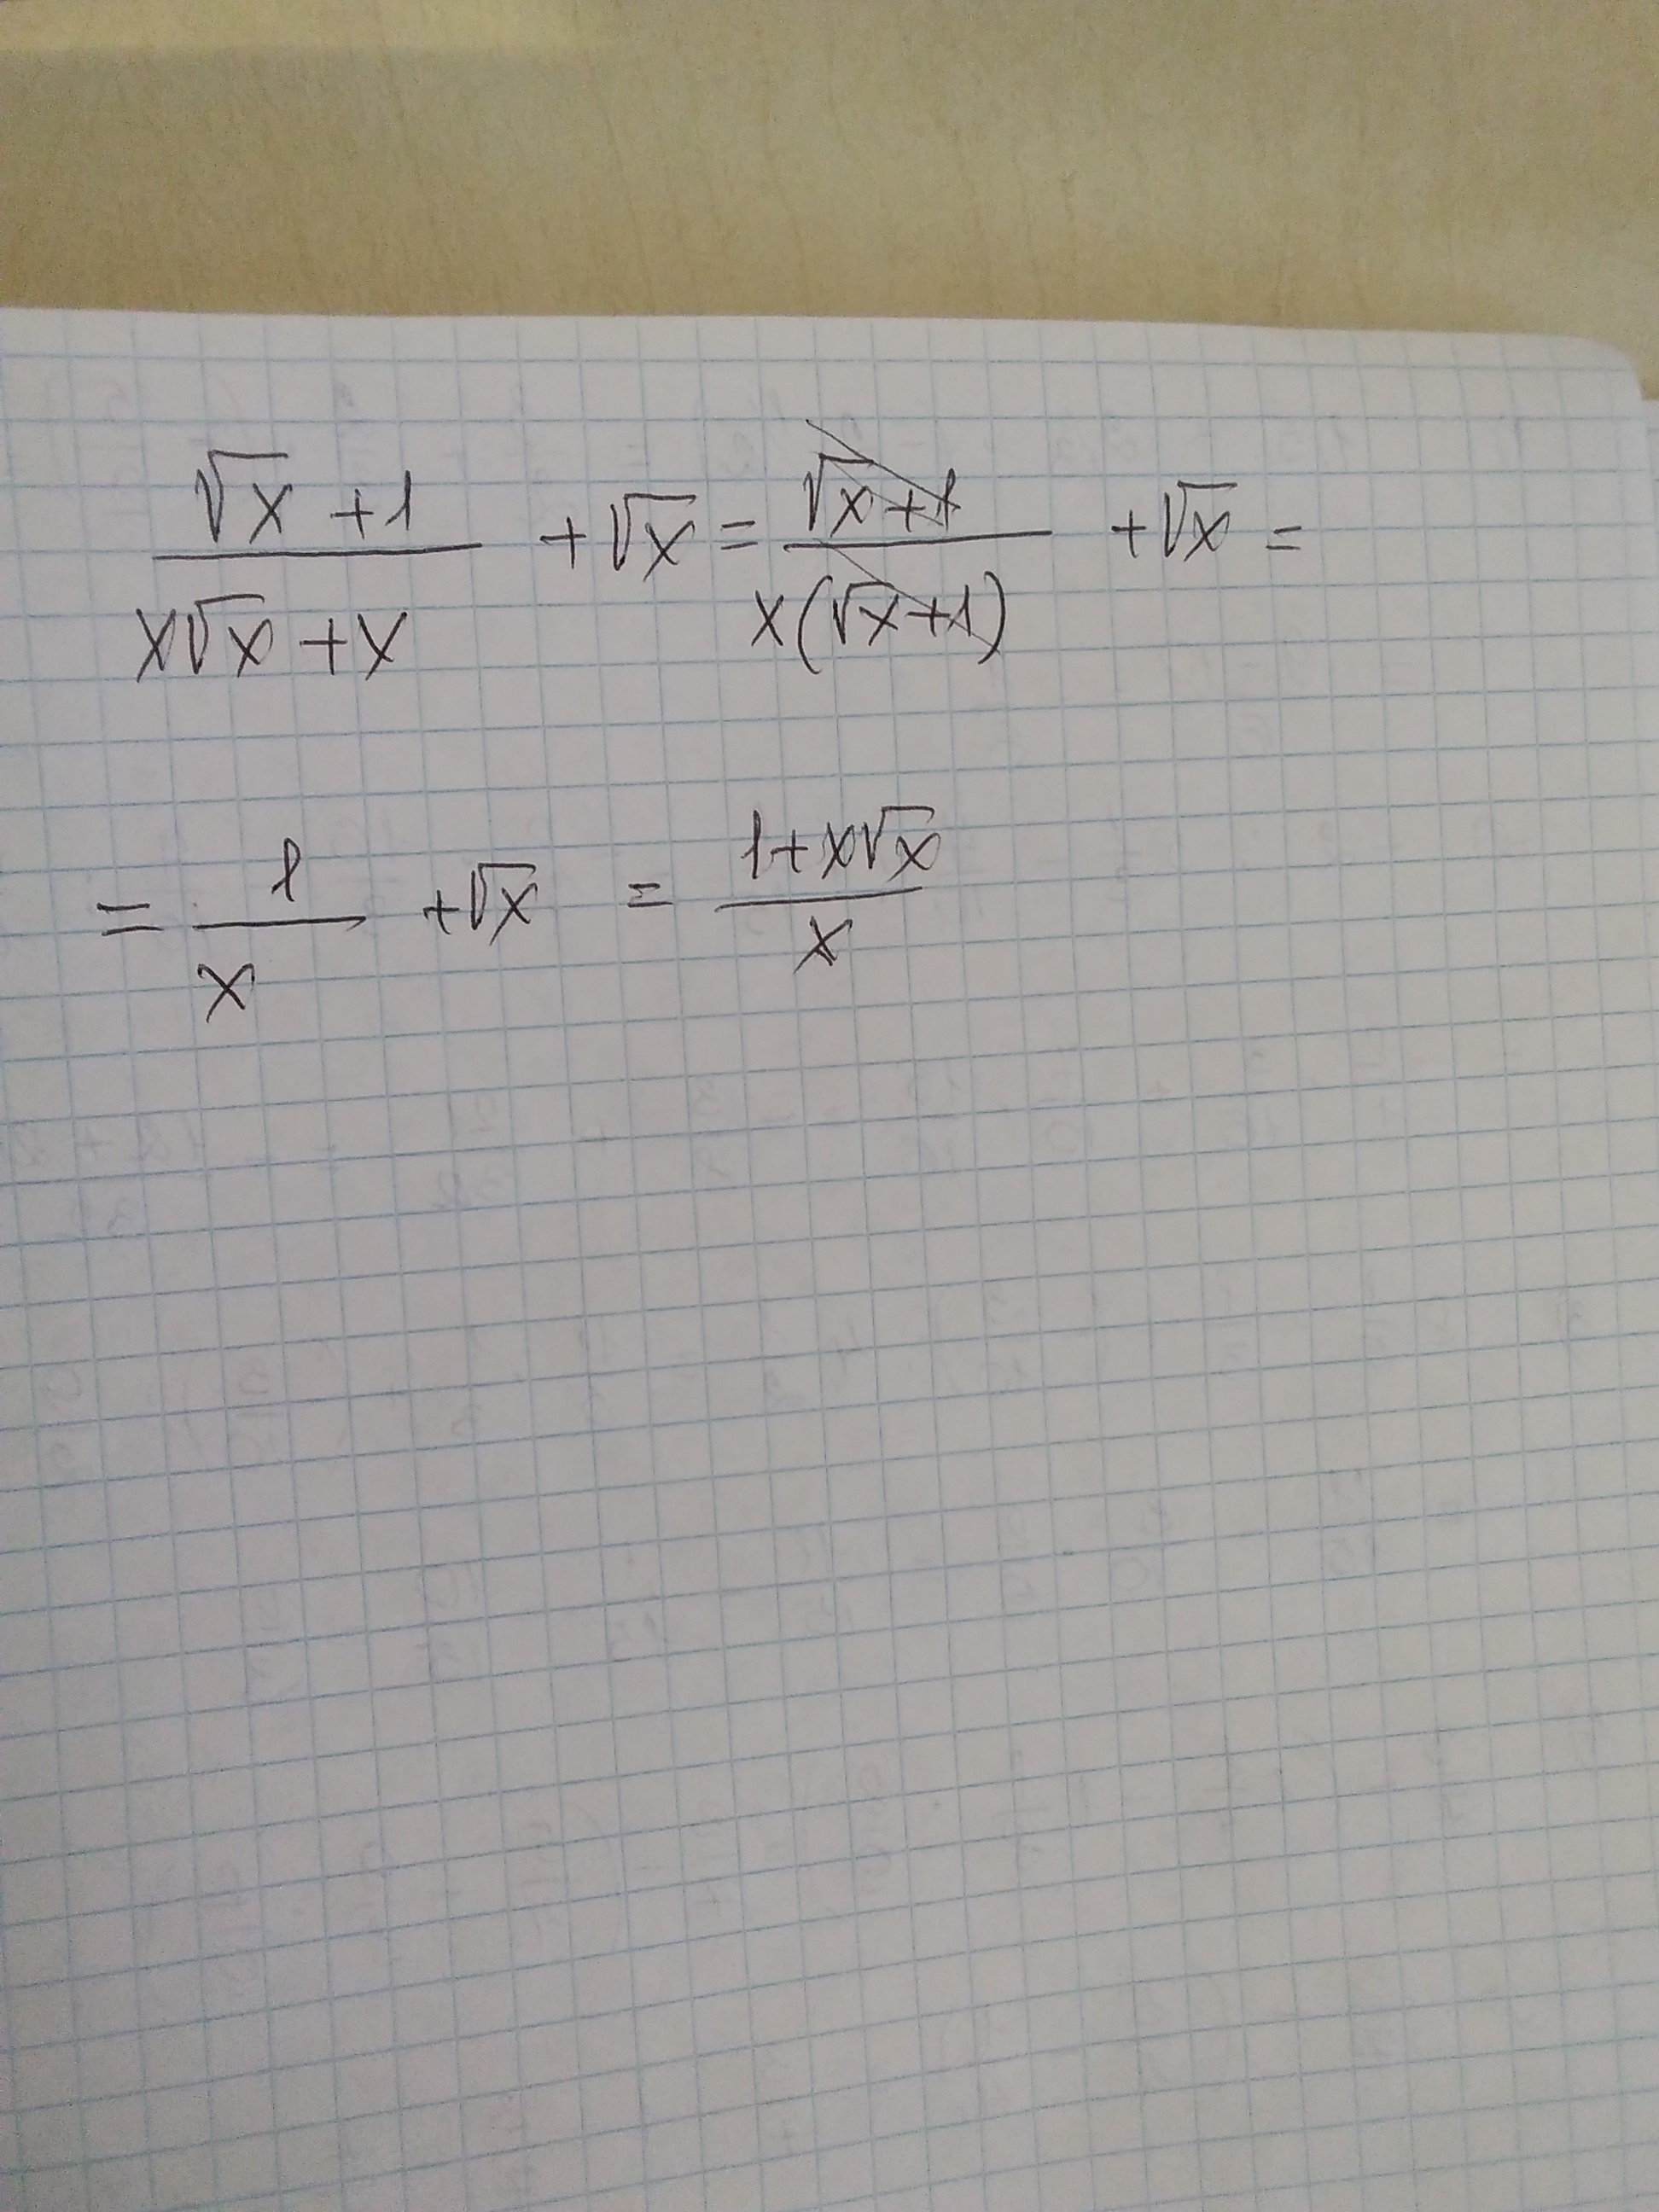 (√x + 1)/(x√x + x) + √x = (√x + 1)/(x(√x + 1)) + √x =
= 1/x + √x = (1 + x√x)/x